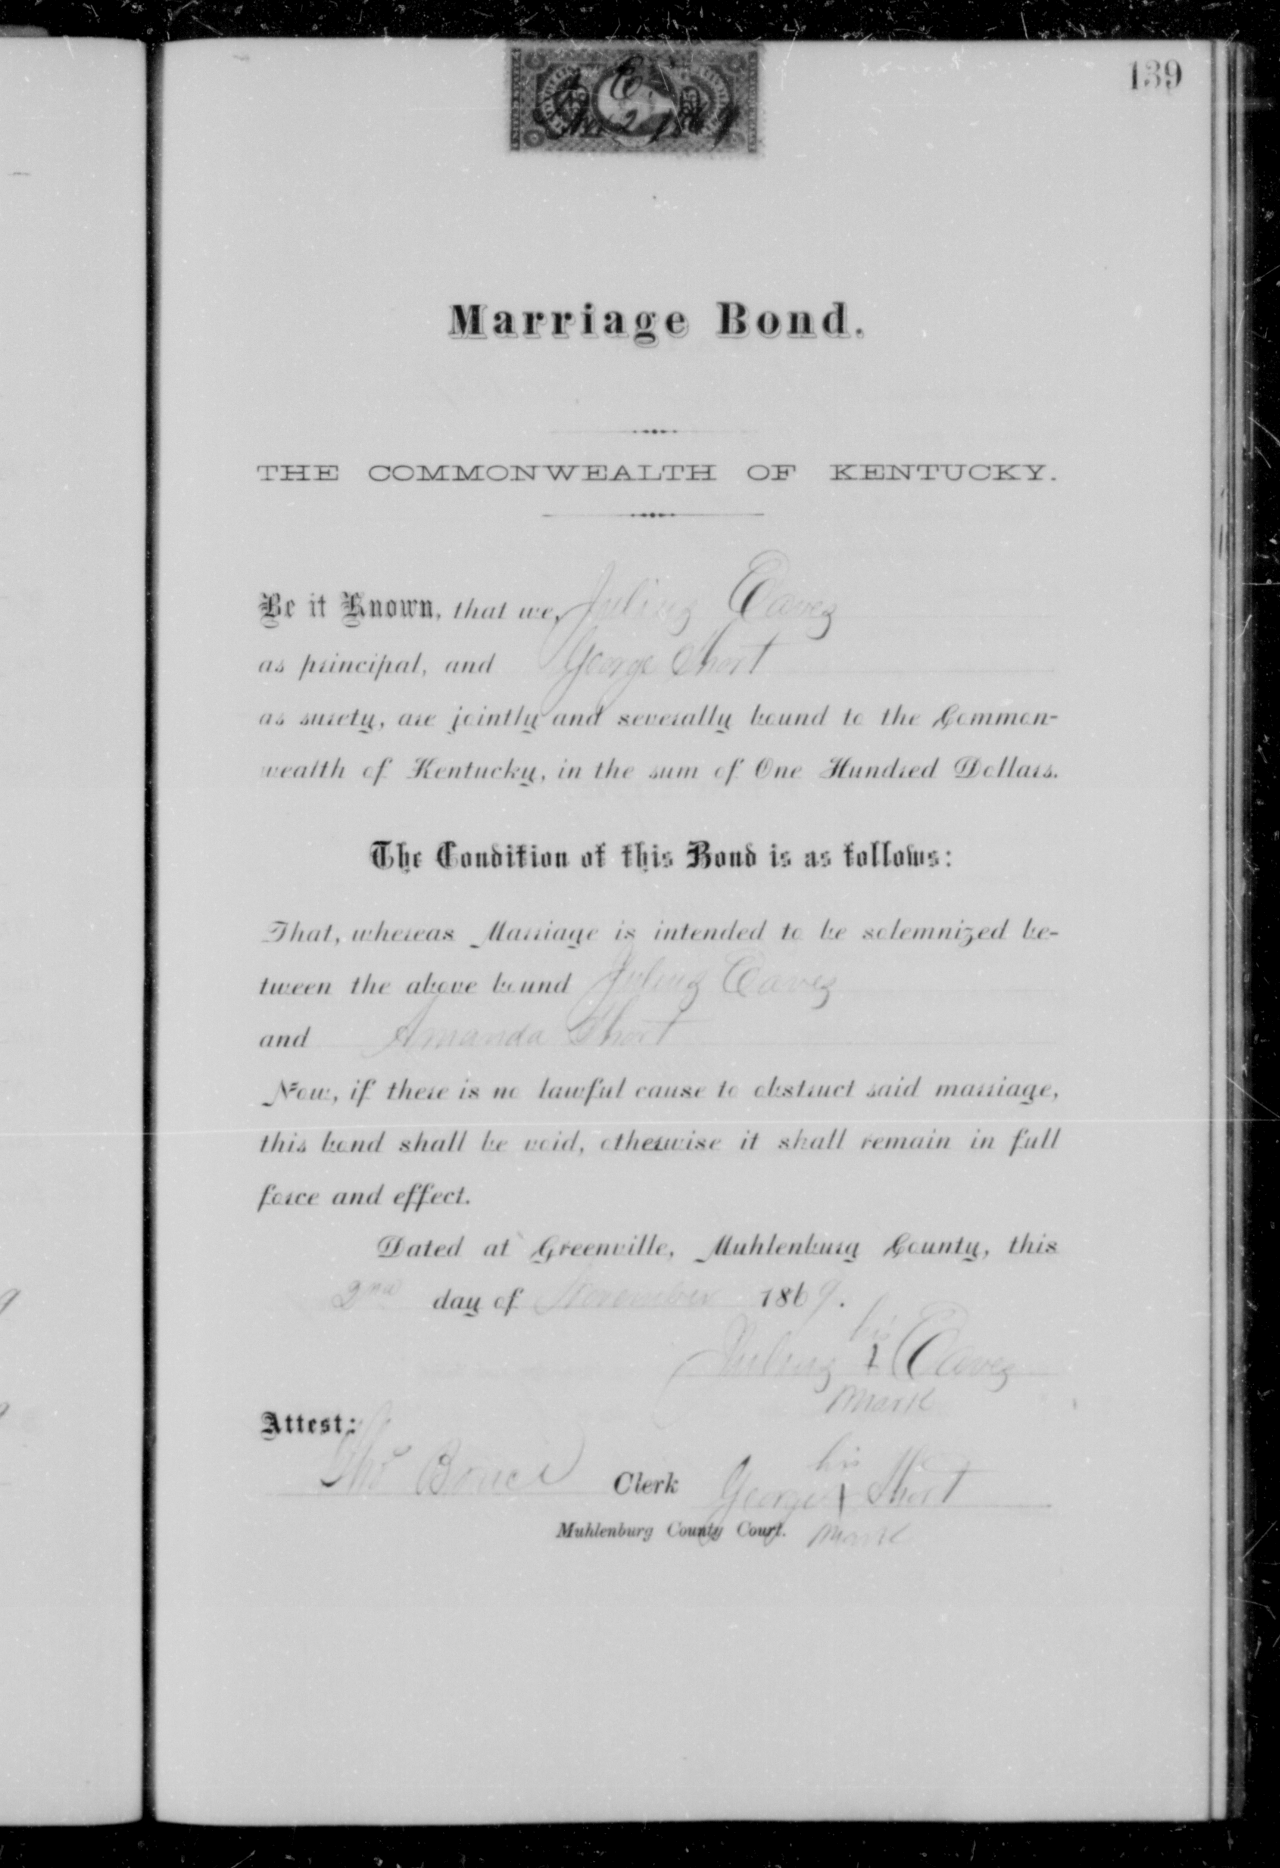 139
E
Nov 2 1869
Marriage Bond.
THE COMMONWEALTH OF KENTUCKY.
Be it Known, that we, Julius Eaves
as principal, and George Short
as surety, are jointly and severally bound to the Common-
wealth of Kentucky, in the sum of One Hundred Dollars.
The Condition of this Bond is as follows:
That, whereas Marriage is intended to be solemnized be-
tween the above bound Julius Eaves
and Amanda Short
Now, if there is no lawful cause to obstruct said marriage,
this bond shall be void, otherwise it shall remain in full
force and effect.
Dated at Greenville, Muhlenburg County, this
2nd day of November 1869.
his
Julius + Eaves
mark
Attest:
Thos Bruce Clerk
his
George + Short
Muhlenburg County Court. mark